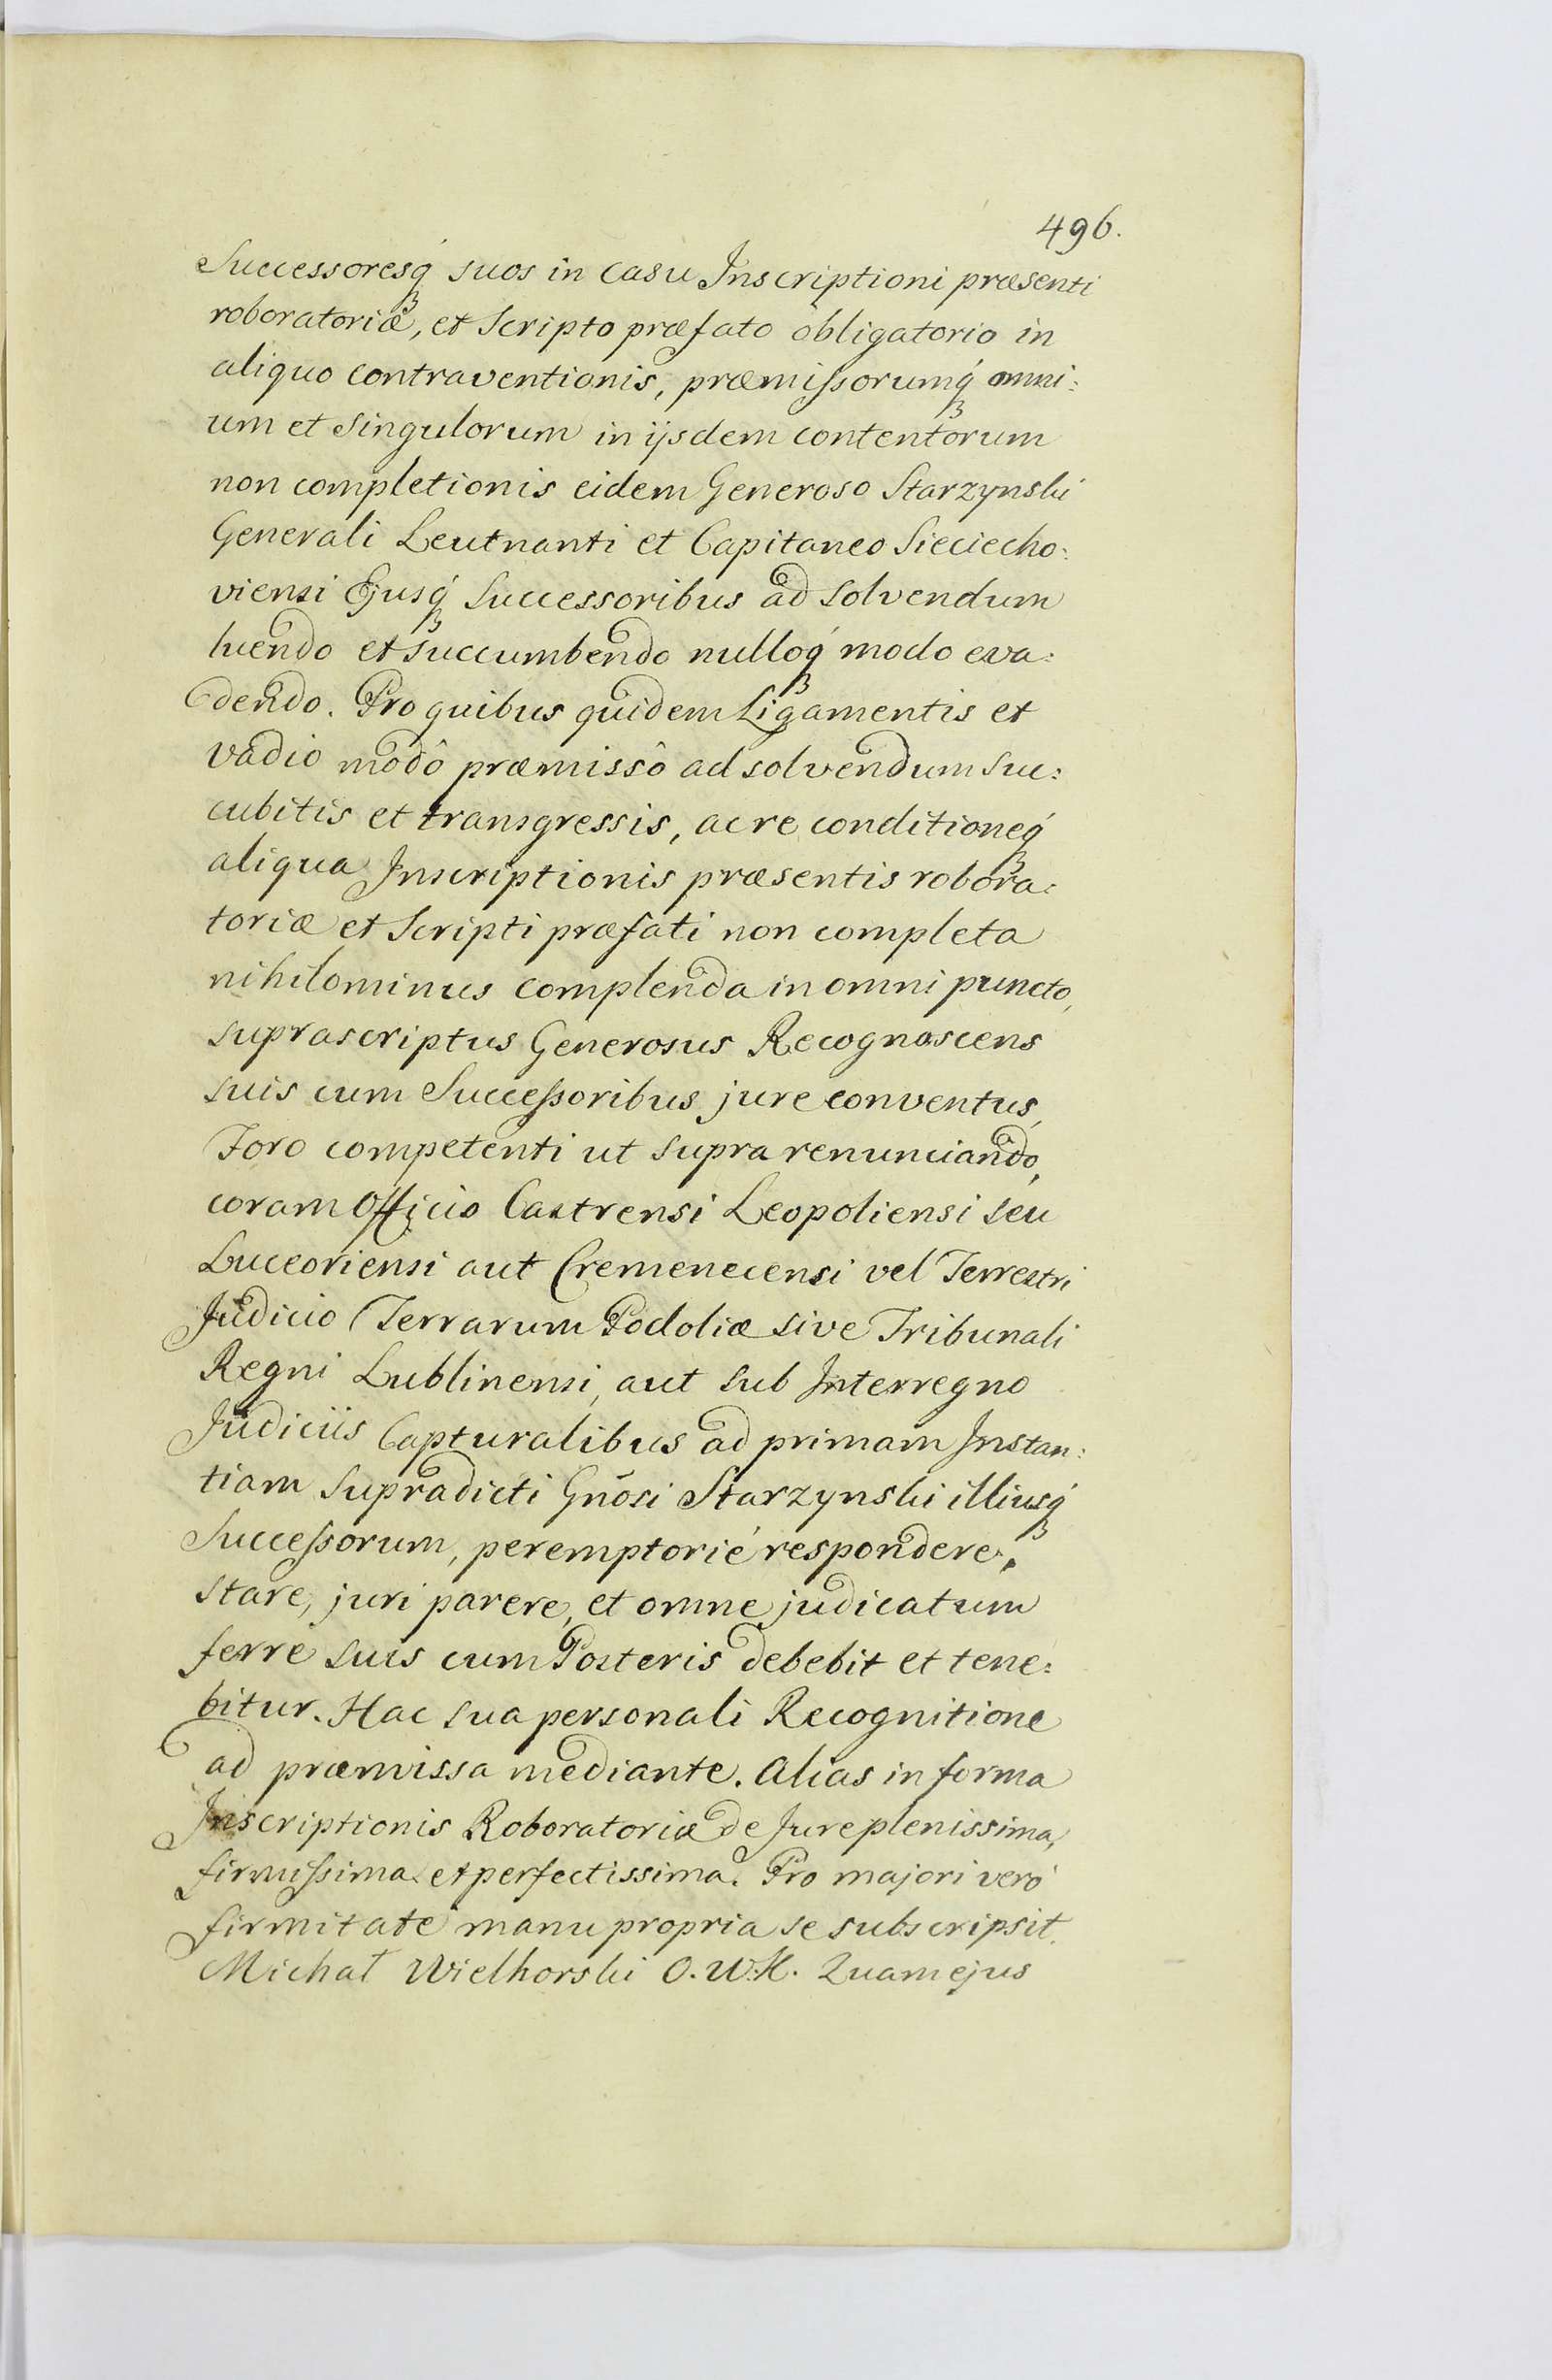 496.
Successoresq́ suos in casu Inscriptioni præsenti
roboratoriæ, et Scripto præfato obligatorio in
aliquo contraventionis, præmissorumq́ omni:
um et singulorum in ijsdem contentorum
non completionis eidem Generoso Starzynski
Generali Leutnanti et Capitaneo Sieciecho:
viensi Ejusq́ Successoribus ad solvendum
luendo et succumbendo nulloq́ modo eva:
dendo. Pro quibus quidem Ligamentis et
vadio modô præmissô ad solvendum suc:
cubitis et transgressis, ac re conditioneq́
aliqua Inscriptionis præsentis robora:
toriæ et Scripti præfati non completa
nihilominus complenda in omni puncto,
suprascriptus Generosus Recognoscens
suis cum Successoribus jure conventus,
Foro competenti ut supra renunciando,
coram Officio Castrensi Leopoliensi seu
Luceoriensi aut Cremenecensi vel Terrestri
Judicio Terrarum Podoliæ sive Tribunali
Regni Lublinensi, aut sub Interregno
Judiciis Capturalibus ad primam Instan:
tiam supradicti Gnōsi Starzynski illiusq́
Successorum, peremptorié respondere,
stare, juri parere, et omne judicatum
ferre suis cum Posteris debebit et tene:
bitur. Hac sua personali Recognitione
ad præmissa mediante. Alias in forma
Inscriptionis Roboratoriæ de Jure plenissima,
firmissima et perfectissima. Pro majori veró
firmitate manu propria se subscripsit.
Michał Wielhorski O. W. K. Quam ejus